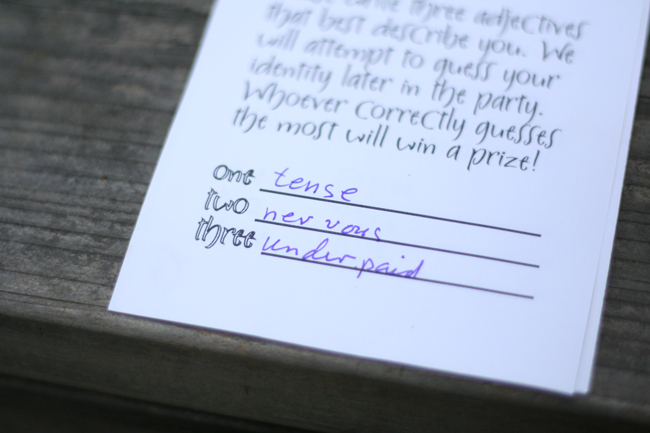 three adjectives
that best describe you. We
will attempt to guess your
identity later in the party.
Whoever correctly guesses
the most will win a prize!
one tense
two nervous
three underpaid